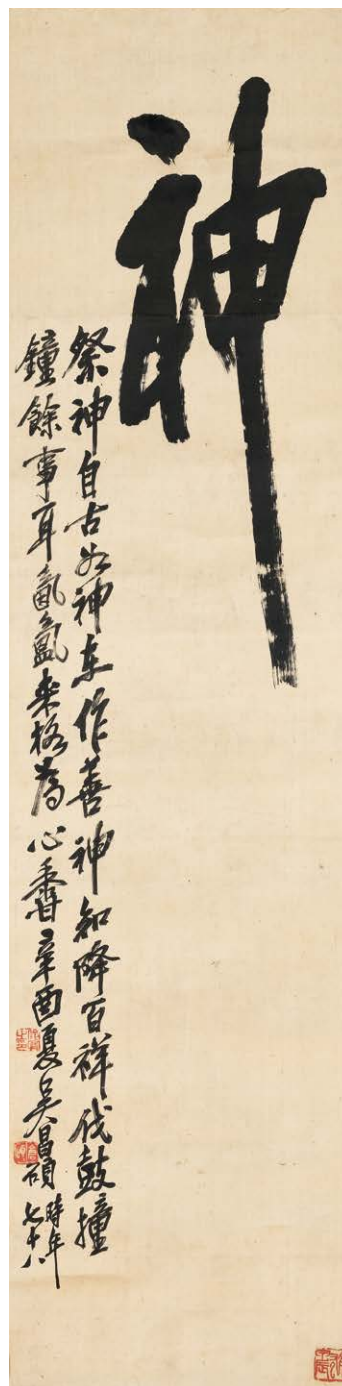 神
祭神自古如神在作善神知降百祥伐鼓撞
鐘餘事耳氤氳來格為心香辛酉夏吳昌碩時年七十八